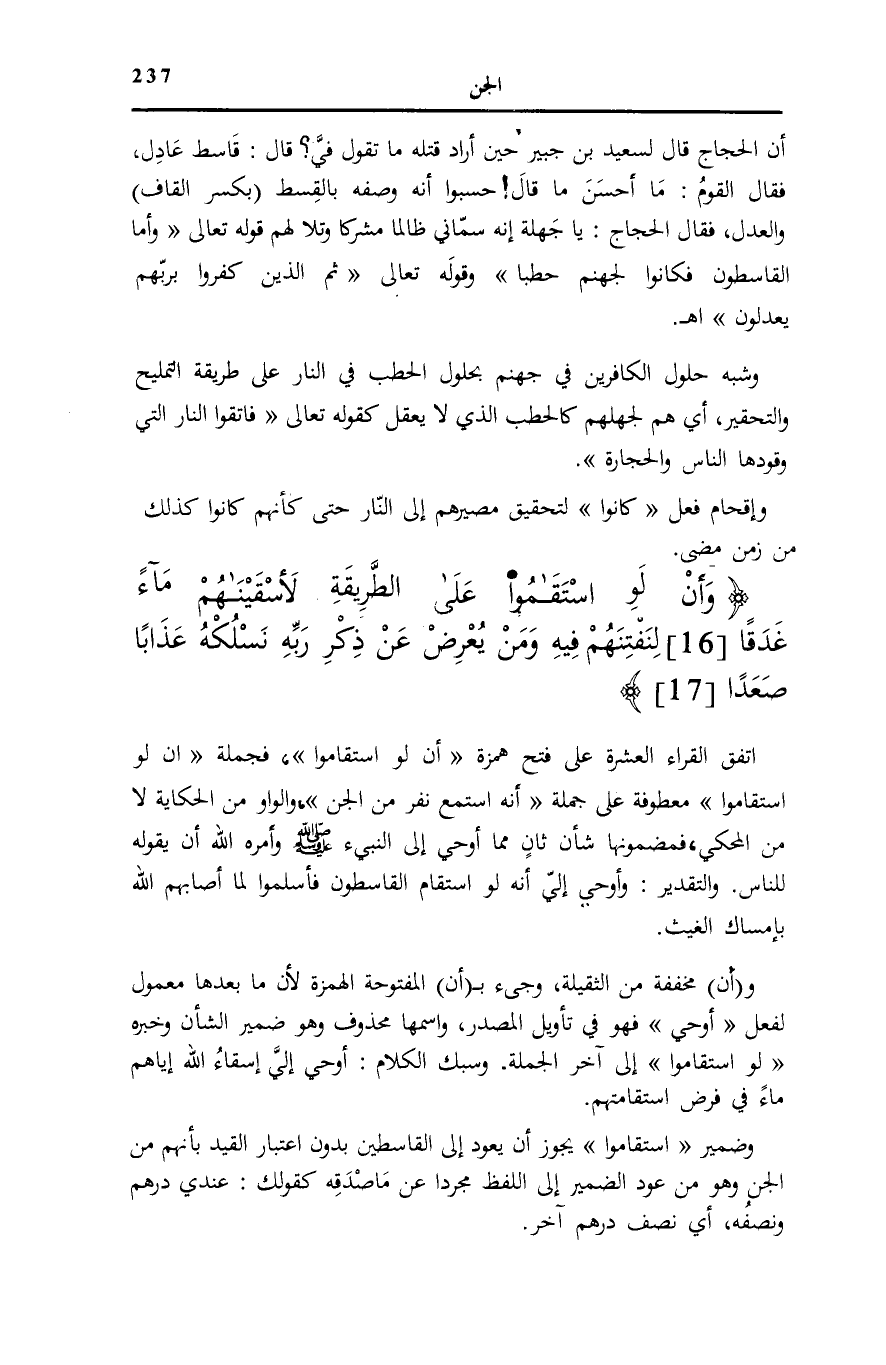 237
الجن
أن الحجاج قال لسعيد بن جبير حين أراد قتله ما تقول فيَّ؟ قال : قَاسط عَادِل،
فقال القومُ : مَا أحسَنَ ما قالَ! حسبوا أنه وصفه بالقِسط (بكسر القاف)
والعدل، فقال الحجاج : يا جَهلة إنه سمّاني ظالما مشركا وتلا لهم قوله تعالى « وأما
القاسطون فكانوا لجهنم حطبا » وقولَه تعالى « ثم الذين كفروا بربّهم
يعدلون » اهـ.
وشبه حلول الكافرين في جهنم بحلول الحطب في النار على طريقة التمليح
والتحقير، أي هم لجهلهم كالحطب الذي لا يعقل كقوله تعالى « فاتقوا النار التي
وقودها الناس والحجارة ».
وإقحام فعل « كانوا » لتحقيق مصيرهم إلى النّار حتى كأنهم كانوا كذلك
من زمن مضى.
﴿ وَأَنْ لَوِ اسْتَقَـٰمُواْ عَلَىٰ الطَّرِيقَةِ لَأَسْقَيْنَـٰهُمْ مَآءً
غَدَقًا [16] لِنَفْتِنَهُمْ فِيهِ وَمَنْ يُعْرِضْ عَنْ ذِكْرِ رَبِّهِ نَسْلُكْهُ عَذَابًا
صَعَدًا [17] ﴾
اتفق القراء العشرة على فتح همزة « أن لو استقاموا »، فجملة « ان لو
استقاموا » معطوفة على جملة « أنه استمع نفر من الجن »، والواو من الحكاية لا
من المحكي، فمضمونها شأن ثانٍ مما أوحي إلى النبيء ﷺ وأمره الله أن يقوله
للناس. والتقدير : وأوحي إليّ أنه لو استقام القاسطون فأسلموا لما أصابهم الله
بإمساك الغيث.
و(أن) مخففة من الثقيلة، وجيء بـ(أن) المفتوحة الهمزة لأن ما بعدها معمول
لفعل « أوحي » فهو في تأويل المصدر، واسمها محذوف وهو ضمير الشأن وخبره
« لو استقاموا » إلى آخر الجملة. وسبك الكلام : أوحي إليَّ إسقاءُ الله إياهم
ماءً في فرض استقامتهم.
وضمير « استقاموا » يجوز أن يعود إلى القاسطين بدون اعتبار القيد بأنهم من
الجن وهو من عود الضمير إلى اللفظ مجردا عن مَاصْدَقِه كقولك : عندي درهم
ونصفُه، أي نصف درهم آخر.